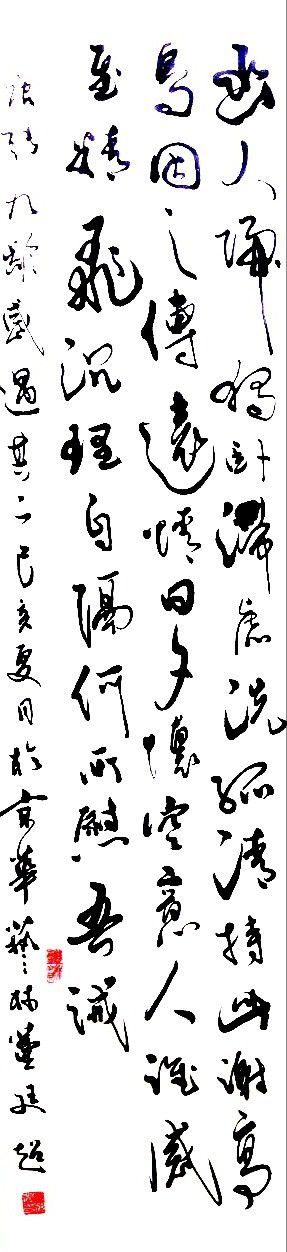 幽人歸獨卧滯慮洗孤清持此謝高
鳥因之傳遠情日夕懷空意人誰感
至精飛沉理自隔何所慰吾誠
唐張九齡感遇其二己亥夏日於京華藝林廷超